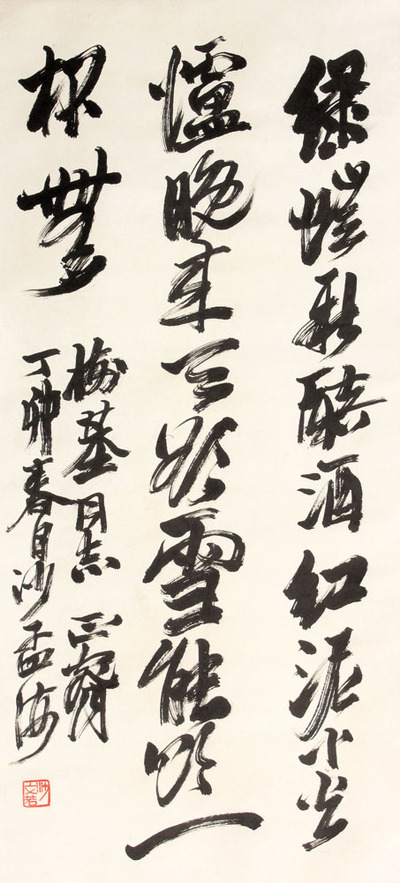 绿螘新醅酒红泥小火
爐晚来天欲雪能飲一
杯無
梅同志正
丁卯春日沙孟海
沙文若